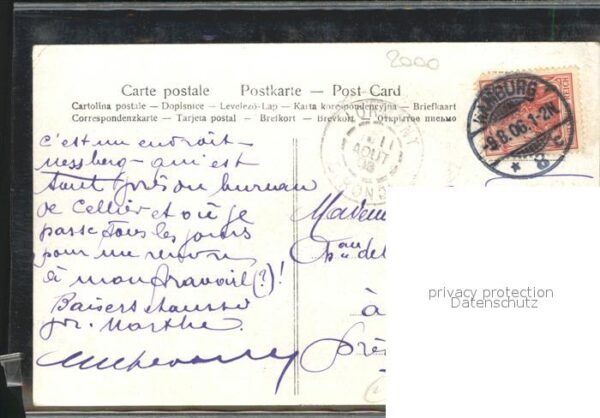 2000
Carte postale  Postkarte – Post Card
Cartolina postale – Dopisnice – Levelező-Lap – Karta korespondencyjna – Briefkaart
Correspondenzkarte – Tarjeta postal – Brefkort – Brevkort – Открытое письмо
HAMBURG
-9.8.06.1-2N
* 8
REICH
11
AOUT
c'est un endroit-
qui est
tout près du bureau
de Cellier et où je
passe tous les jours
pour me
à mon travail (?)!
Baisers
Marthe
Madem
de
à
près
privacy protection
Datenschutz